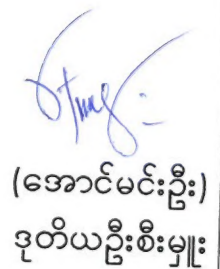 (အောင်မင်းဦး)
ဒုတိယဦးစီးမှူး